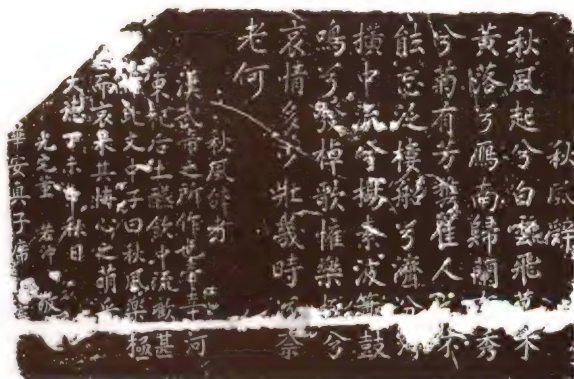 秋風辭
秋風起兮白雲飛草木
黃落兮鴈南歸蘭有秀
兮菊有芳攜佳人兮不
能忘泛樓船兮濟汾
橫中流兮揚素波簫鼓
鳴兮發棹歌懽樂極兮
哀情多少壯幾時兮奈
老何
秋風辭者
漢武帝之所作也帝幸河
東祀后土讌飲中流歡甚
此文中子曰秋風樂極
而哀來其悔心之萌乎
大德丁未中秋日
光宅
華安與子